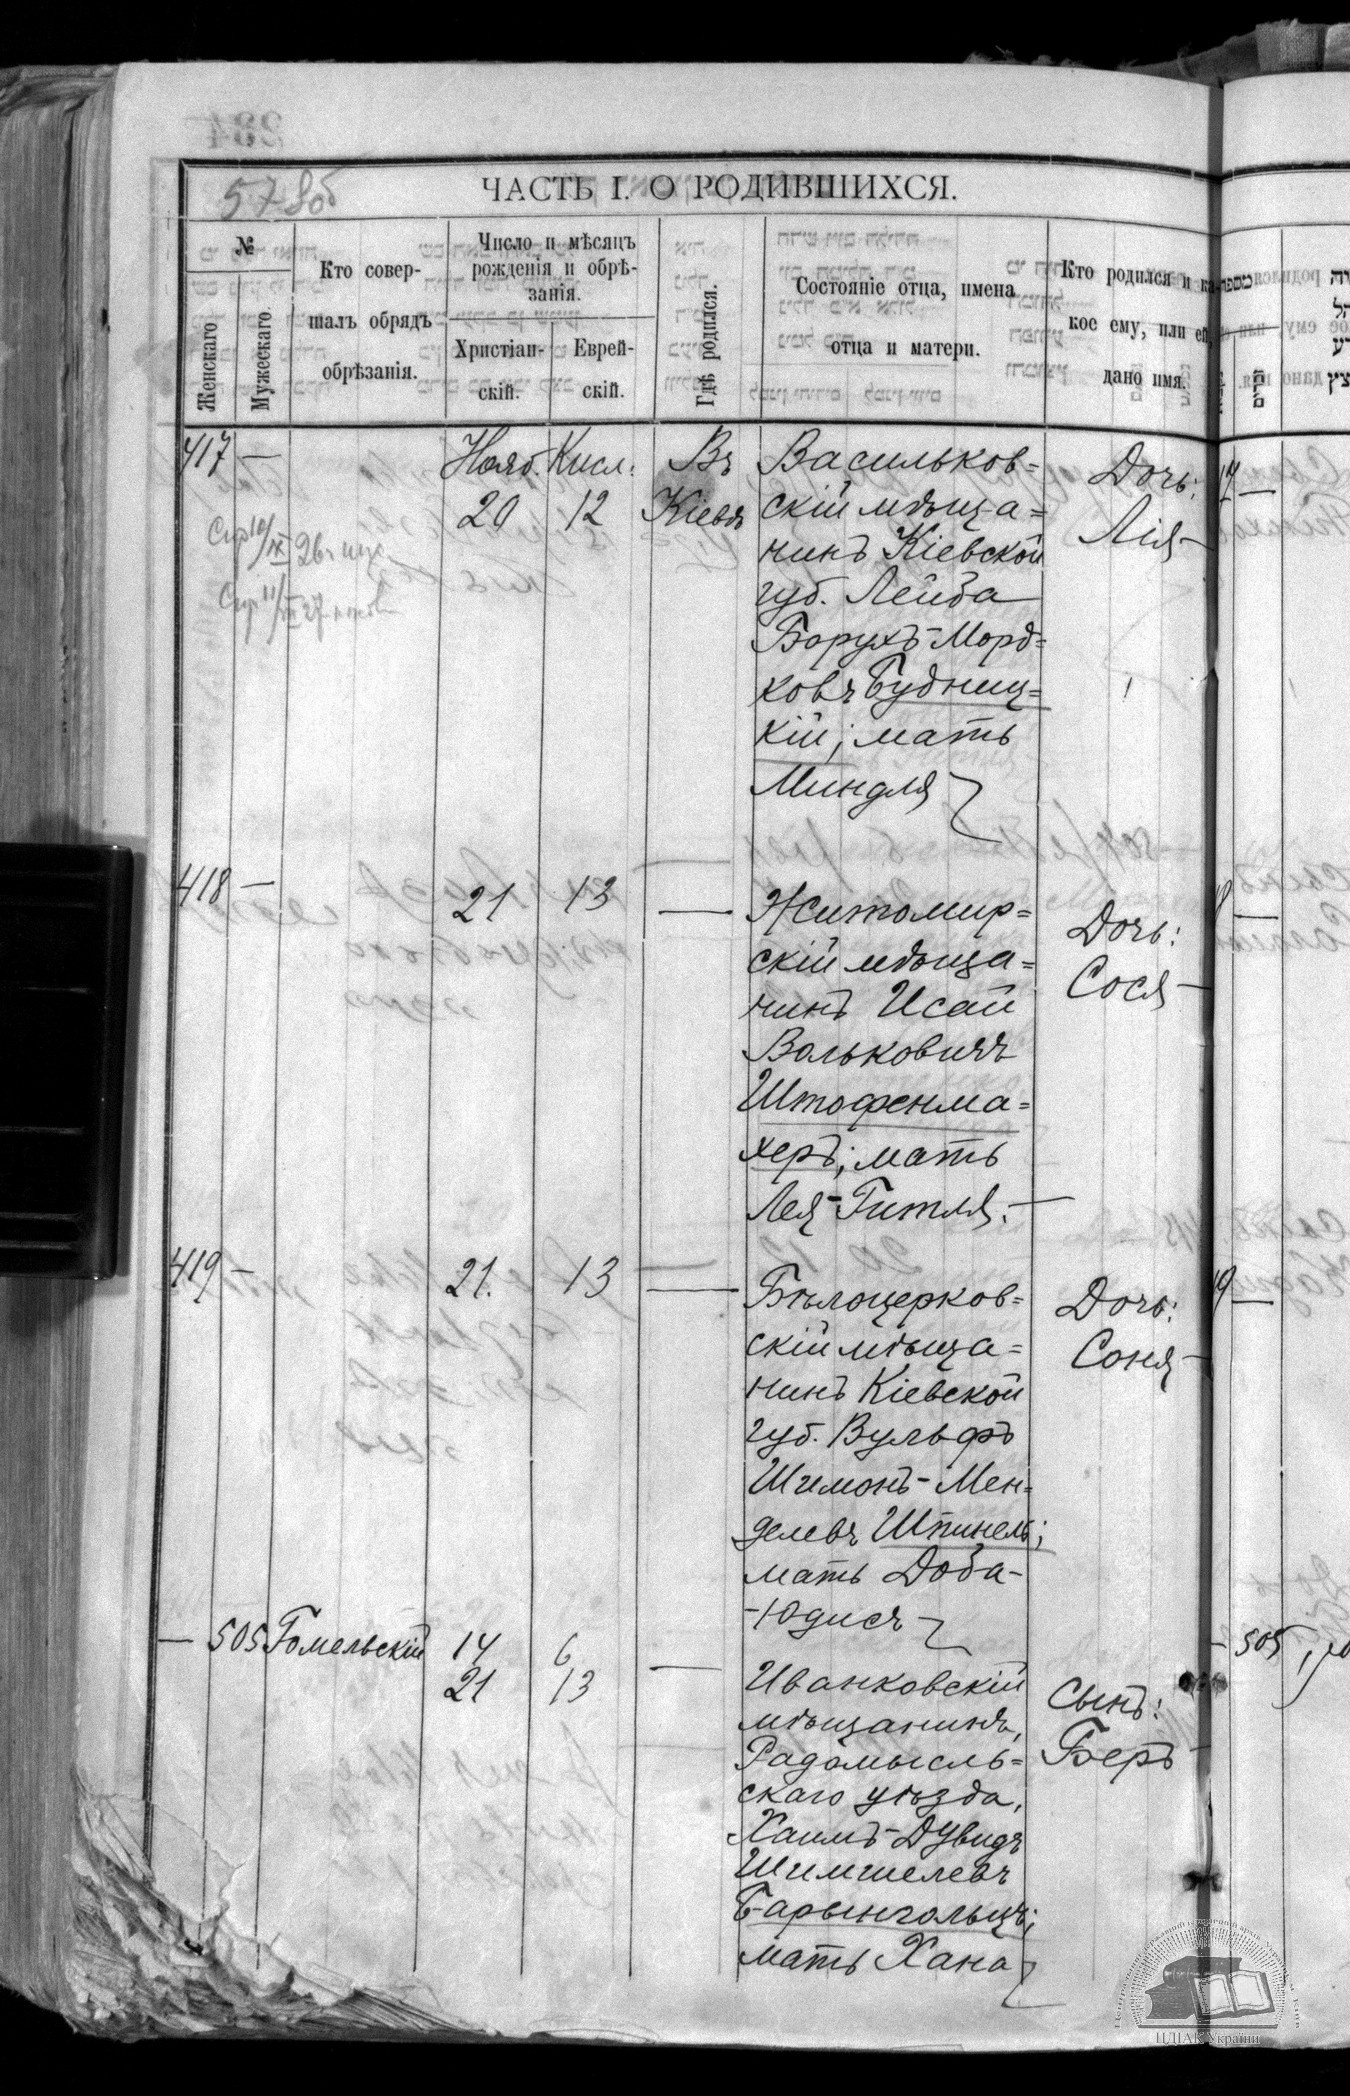 578об
ЧАСТЬ I. О РОДИВШИХСЯ.
№
Женскаго
Мужескаго.
Кто совер-
шалъ обрядъ
обрѣзанія.
Число и мѣсяцъ
рожденія и обрѣ-
занія.
Христіан-
скій.
Еврей-
скій.
Гдѣ родился.
Состояніе отца, имена
отца и матери.
Кто родился и ка-
кое ему, или ей
дано имя.
417 —
Нояб. Кисл.
20 12
Въ
Кіевѣ
Васильков=
скій мѣща=
нинъ Кіевской
губ. Лейба
Борухъ-Морд=
ковъ Будниц=
кій; мать
Миндля
Дочь:
Лія-
418 — 21 13 —
Житомир=
скій мѣща=
нинъ Исай
Вольковичъ
Штофенма=
херъ; мать
Лея-Гитля.
Дочь:
Сося-
419 - 21. 13 —
Бѣлоцерков=
скій мѣща=
нинъ Кіевской
губ. Вульфъ
Шимонъ-Мен=
делевъ Шпинель;
мать Доба-
-Юдисъ
Дочь:
Соня-
— 505 Гомельскій 14 6
21 13 —
Иванковскій
мѣщанинъ,
Радомысль=
скаго уѣзда,
Хаимъ-Дувидъ
Шимшелевъ
Барынгольцъ;
мать Хана
Сынъ:
Беръ
- 505
ЦДІАК України